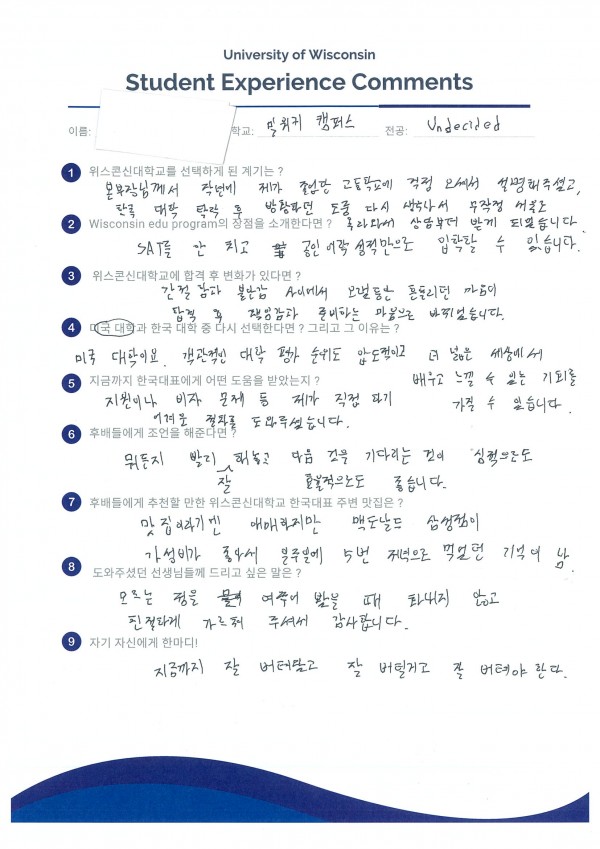 University of Wisconsin
Student Experience Comments
이름: 학교: 밀워키 캠퍼스 전공: Undecided
1 위스콘신대학교를 선택하게 된 계기는 ?
본부장님께서 작년에 제가 졸업한 고등학교에 직접 오셔서 설명해주셨고,
한국 대학 탈락 후 방황하던 도중 다시 생각나서 무작정 서울로
2 Wisconsin edu program의 장점을 소개한다면 ? 올라와서 상담부터 받게 되었습니다.
SAT를 안 치고 공인어학성적만으로 입학할 수 있습니다.
3 위스콘신대학교에 합격 후 변화가 있다면 ?
간절함과 불안감 사이에서 오랫동안 흔들리던 마음이
합격 후 책임감과 준비하는 마음으로 바뀌었습니다.
4 미국 대학과 한국 대학 중 다시 선택한다면 ? 그리고 그 이유는 ?
미국 대학이요. 객관적인 대학 평가 순위도 압도적이고 더 넓은 세상에서
배우고 느낄 수 있는 기회를
5 지금까지 한국대표에게 어떤 도움을 받았는지 ?
지원이나 비자 문제 등 제가 직접 하기 가질 수 있습니다.
어려운 절차를 도와주셨습니다.
6 후배들에게 조언을 해준다면 ?
뭐든지 빨리 해놓고 다음 것을 기다리는 것이 심적으로도
잘 효율적으로도 좋습니다.
7 후배들에게 추천할 만한 위스콘신대학교 한국대표 주변 맛집은 ?
맛집이라기엔 애매하지만 맥도날드 삼성점이
가성비가 좋아서 일주일에 5번 저녁으로 먹었던 기억이 남.
8 도와주셨던 선생님들께 드리고 싶은 말은 ?
모르는 점을 여쭈어 봤을 때 화내지 않고
친절하게 가르쳐 주셔서 감사합니다.
9 자기 자신에게 한마디!
지금까지 잘 버텨왔고 잘 버틸거고 잘 버텨야 한다.